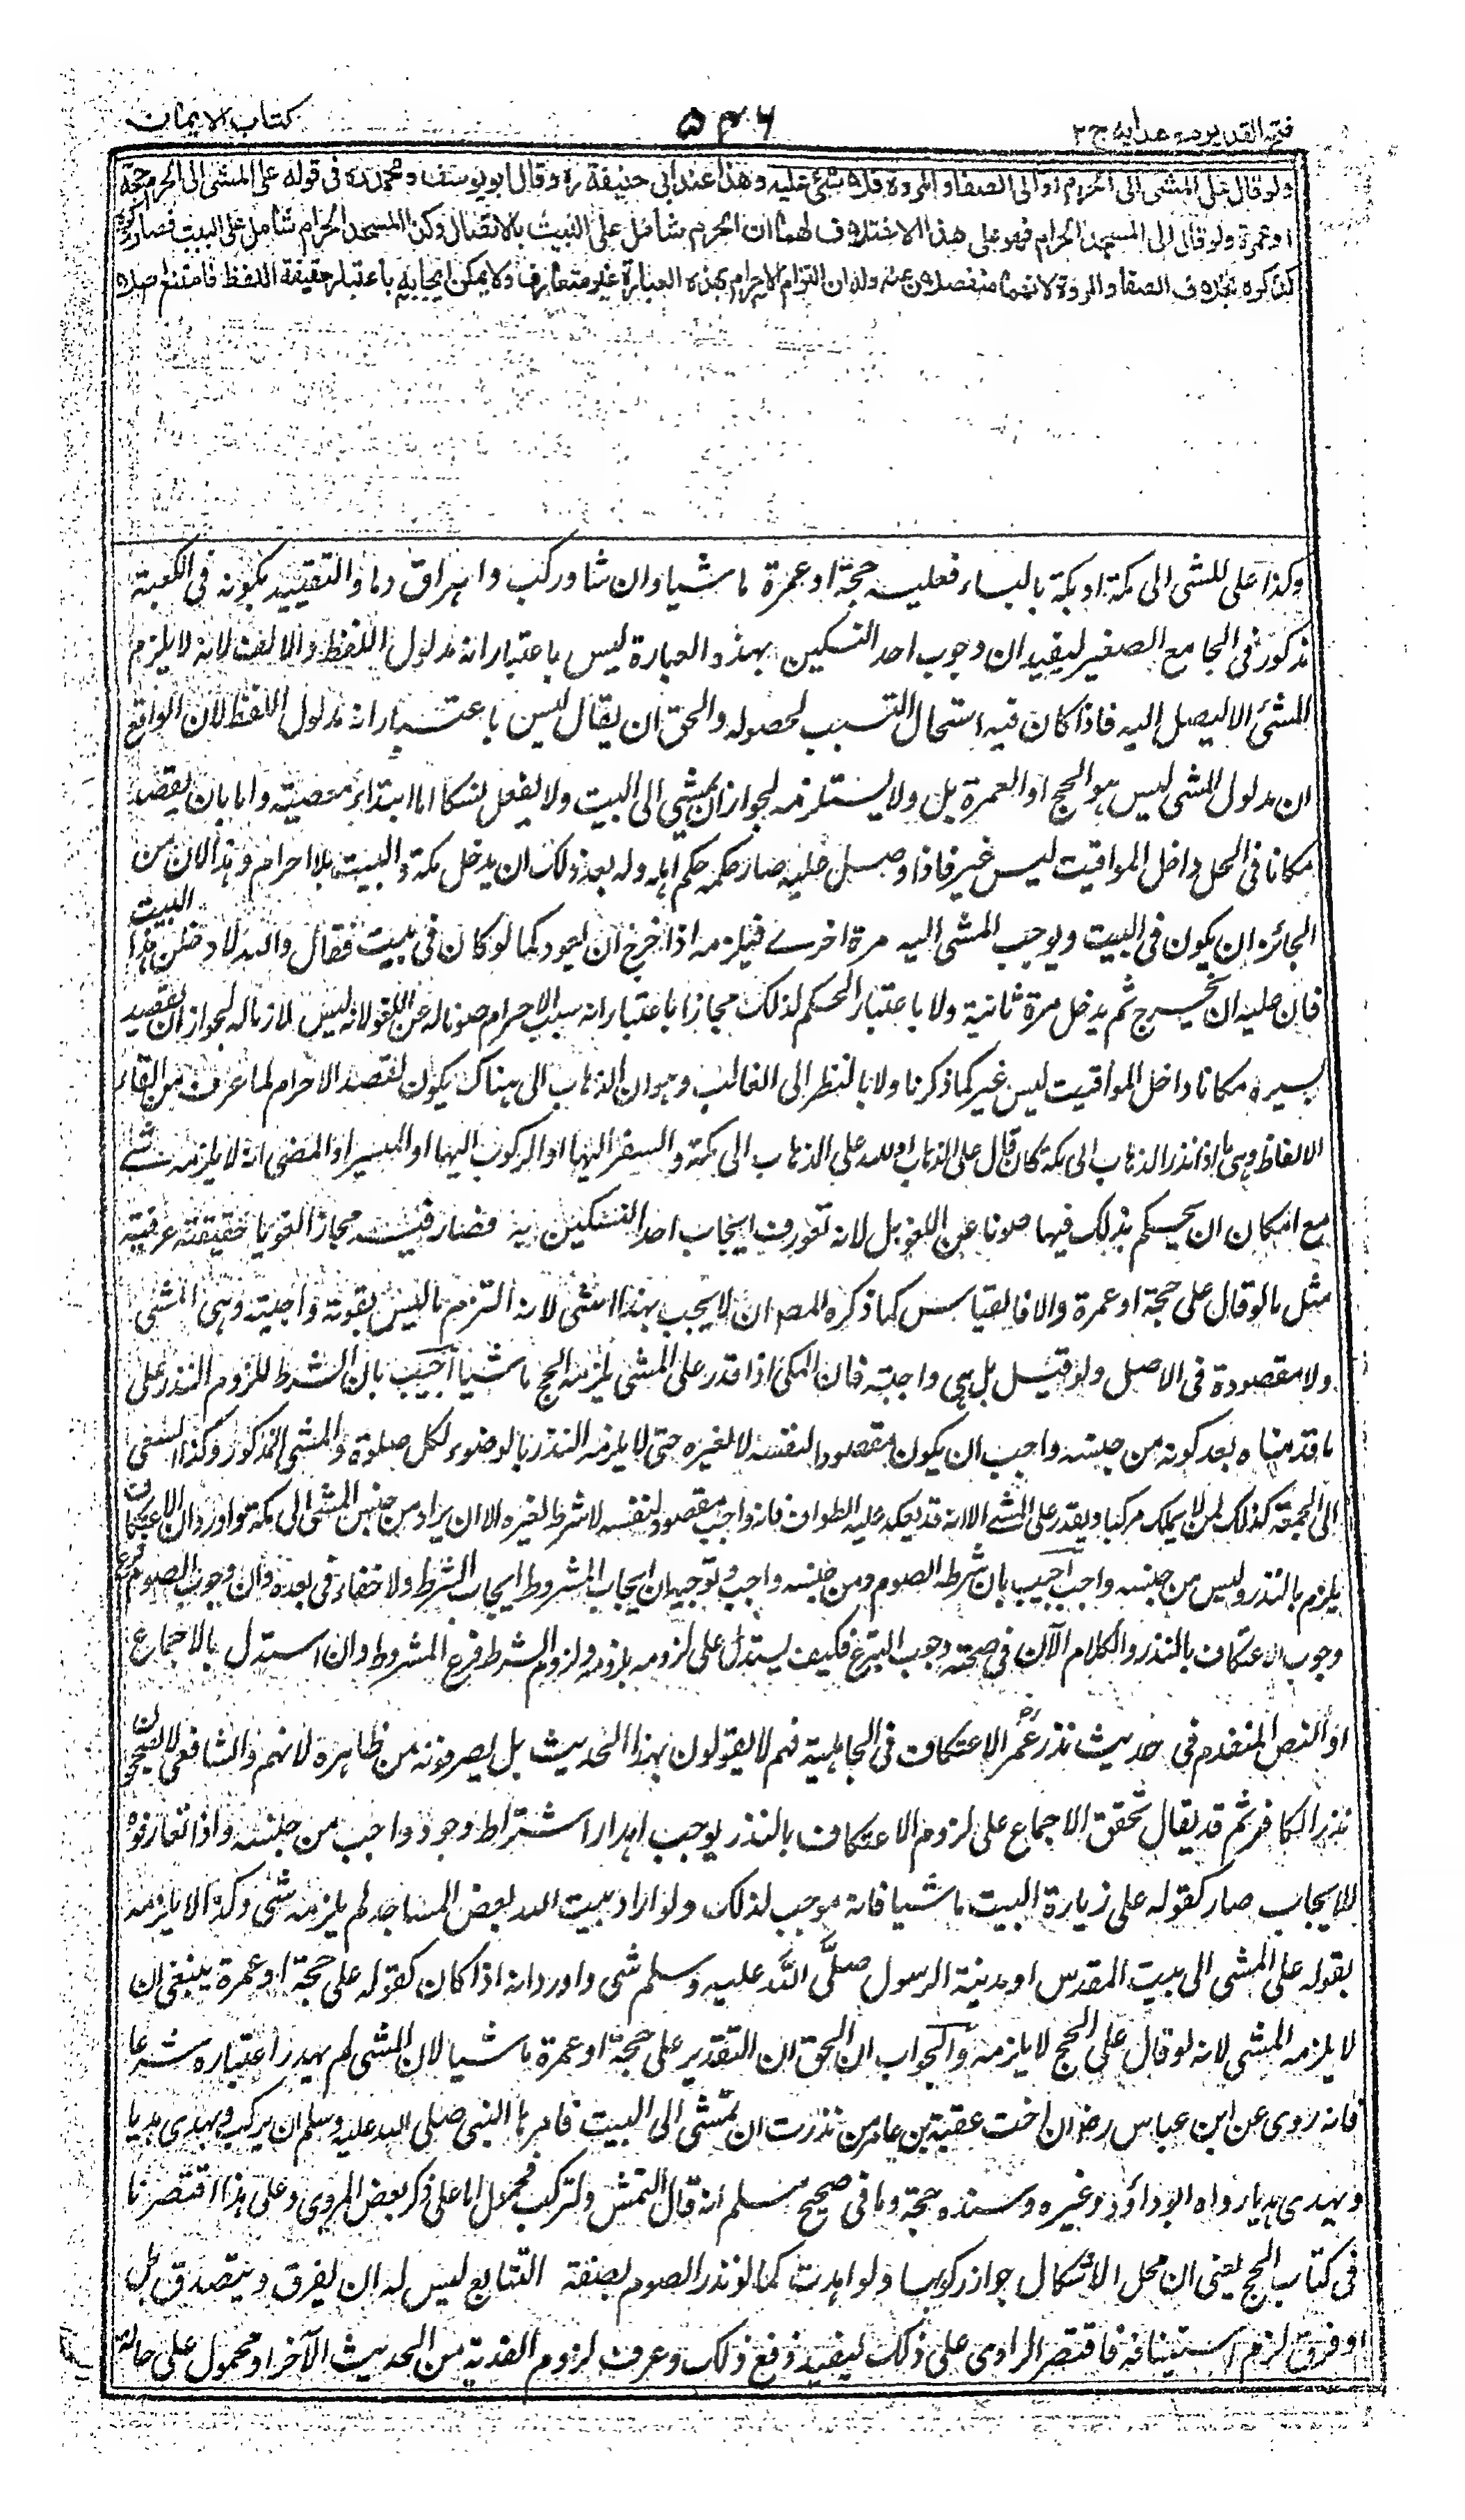 فتح القدير مع هدايه ج٢
٥٤٦
كتاب الايمان
ولو قال على المشى الى الحرم او الى الصفا والمروة فلا شئ عليه وهذا عند ابى حنيفة ره وقال ابو يوسف ومحمد ره فى قوله على المشى الى الحرم حجة
او عمرة ولو قال الى المسجد الحرام فهو على هذا الاختلاف لهما ان الحرم شامل على البيت بالاتصال وكذا المسجد الحرام شامل على البيت فصار ذكره
كذكره بخلاف الصفا والمروة لانهما منفصلان عنه وله ان التزام الاحرام بهذه العبارة غير متعارف ولا يمكن ايجابه باعتبار حقيقة اللفظ فامتنع اصلا
وكذا على المشى الى مكة او بكة بالباء فعليه حجة او عمرة ماشيا وان شاء ركب واهراق دما والتقييد بكونه فى الكعبة
مذكور فى الجامع الصغير ليفيد ان وجوب احد النسكين بهذه العبارة ليس باعتبار انه مدلول اللفظ والا لغت لانه لا يلزم
المشئ الا ليصل اليه فاذا كان فيه استحال التسبب لحصوله والحق ان يقال ليس باعتبار انه مدلول اللفظ لان الواقع
ان مدلول المشى ليس هو الحج او العمرة بل ولا يستلزمه لجواز ان يمشى الى البيت ولا يفعل نسكا اما ابتداء معصية واما بان يقصد
مكانا فى الحل داخل المواقيت ليس غير فاذا وصل عليه صار حكمه حكم اهله وله بعد ذلك ان يدخل مكة والبيت بلا احرام وهذا لان من
الجائز ان يكون فى البيت ويوجب المشى اليه مرة اخرى فيلزمه اذا خرج ان يعود كما لو كان فى بيت فقال والله لادخلن هذا البيت
فان عليه ان يخرج ثم يدخل مرة ثانية ولا باعتبار الحكم لذلك مجازا باعتبار انه سبب الاحرام صونا له عن اللغو لانه ليس لازما له لجواز ان يقصد
بسيره مكانا داخل المواقيت ليس غير كما ذكرنا ولا بالنظر الى الغالب وهو ان الذهاب الى هناك يكون لقصد الاحرام لما عرف من القاء
الالفاظ وهى ما اذا نذر الذهاب الى مكة كان قال على الذهاب او لله على الذهاب الى مكة والسفر اليها او الركوب اليها او المسير او المضى انه لا يلزمه شئ
مع امكان ان يحكم بذلك فيها صونا عن اللغو بل لانه تعورف ايجاب احد النسكين به فصار فيه مجازا لغويا حقيقة عرفية
مثل ما لو قال على حجة او عمرة والا فالقياس كما ذكره المصـ ان لا يجب بهذا شئ لانه التزم ما ليس بقربة واجبة وهى المشى
ولا مقصودة فى الاصل ولو قيل بل هى واجبة فان المكى اذا قدر على المشى لزمه الحج ماشيا اجيب بان الشرط للزوم النذر على
ما قدمناه بعد كونه من جنسه واجب ان يكون مقصودا لنفسه لا لغيره حتى لا يلزمه النذر بالوضوء لكل صلوة والمشى المذكور وكذا السعى
الى الجمعة كذلك لمن لا يملك مركبا ويقدر على المشى الا انه قد يعكر عليه الطواف فانه واجب مقصود لنفسه لا شرط لغيره الا ان يراد من جنس المشى الى مكة واورد ان الاعتكاف
يلزم بالنذر وليس من جنسه واجب اجيب بان شرطه الصوم ومن جنسه واجب وتوجيه ان ايجاب المشروط ايجاب الشرط ولا خفاء فى بعده وان وجوب الصوم فرع
وجوب الاعتكاف بالنذر والكلام الآن فى صحة وجوب المتبرع فكيف يستدل على لزومه بلزومه ولزوم الشرط فرع المشروط وان استدل بالاجماع
او النص المتقدم فى حديث نذر عمر رض الاعتكاف فى الجاهلية فهم لا يقولون بهذا الحديث بل يصرفونه من ظاهره لانهم والشافعى لا يصححون
نذر الكافر ثم قد يقال تحقق الاجماع على لزوم الاعتكاف بالنذر يوجب اهدار اشتراط وجود واجب من جنسه واذا تعارفوه
للايجاب صار كقوله على زيارة البيت ماشيا فانه موجب لذلك ولو اراد ببيت الله بعض المساجد لم يلزمه شئ وكذا لا يلزمه
بقوله على المشى الى بيت المقدس او مدينة الرسول صلى الله عليه وسلم شئ واورد انه اذا كان كقوله على حجة او عمرة ينبغى ان
لا يلزمه المشى لانه لو قال على الحج لا يلزمه والجواب ان الحق ان التقدير على حجة او عمرة ماشيا لان المشى لم يهدر اعتباره شرعا
فانه روى عن ابن عباس رضـ ان اخت عقبة بن عامر نذرت ان تمشى الى البيت فامرها النبى صلى الله عليه وسلم ان تركب وتهدى هديا
وتهدى هديا رواه ابو داؤد وغيره وسنده حجة وما فى صحيح مسلم انه قال لتمش ولتركب فمحمول اما على ذكر بعض المروى وعلى هذا اقتصرنا
فى كتاب الحج يعنى ان محل الاشكال جواز ركوبها ولو اهدت كما لو نذر الصوم بصفة التتابع ليس له ان يفرق ويتصدق بل
او فرق لزم استينافه فاقتصر الراوى على ذلك ليفيد دفع ذلك وعرف لزوم الفدية من الحديث الآخر او محمول على حالة